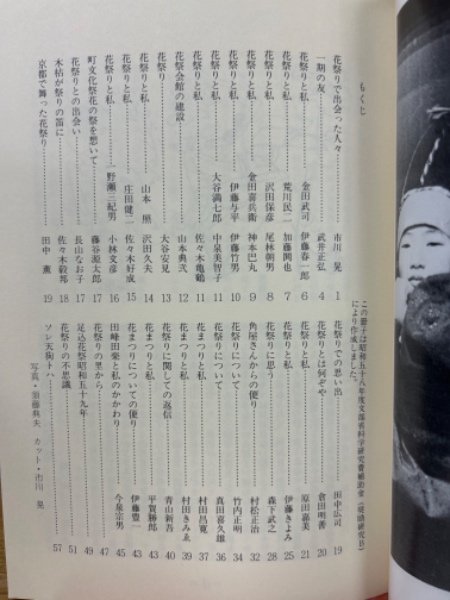 もくじ
花祭りで出会った人々……市川 晃 1
一期の友……武井正弘 4
花祭りと私……金田武司 伊藤春一郎 6
花祭りと私……荒川民二 加藤関也 7
花祭りと私……沢田保彦 尾林朝男 8
花祭りと私……金田喜兵衛 神本巴丸 9
花祭りと私……伊藤与平 伊藤竹男 10
花祭りと私……大谷満七郎 中泉美智子 11
花祭りと私……佐々木亀鶴 11
花祭会館の建設……山本典弐 12
花祭り……大谷安見 13
花祭りと私……山本 照 沢田久夫 14
花祭りと私……庄田健二 佐々木好成 15
花祭りと私……一野瀬二紀男 小林文彦 16
町文化祭花の祭を想いて……藤谷源太郎 17
花祭りとの出会い……長山なお子 17
木枯が祭りの笛に……佐々木毅邦 18
京都で舞った花祭り……田中 薫 19
この冊子は昭和五十八年度文部省科学研究費補助金(奨励研究B)
により作成しました。
花祭りでの思い出……田中広司 19
花祭りとは何ぞや……倉田明善 20
花祭りと私……原田嘉美 21
花祭りと私……伊藤きよみ 25
花祭りに思う……森下武之 28
角屋さんからの便り……村松正治 32
花祭りについて……竹内正明 34
花祭りについて……真田喜久雄 36
花まつりと私……村田昌寛 37
花まつりと私……村田きみゑ 39
花祭りに関しての返信……青山新吾 41
花まつりと私……平賀勝郎 43
花まつりについての便り……伊藤豊一 43
田峰田楽と私のかかわり……今泉宗男 45
花祭りの里から……47
足込花祭昭和五十九年……49
花祭りの不思議……51
ソレ天狗トハ……57
写真・須藤典夫 カット・市川 晃